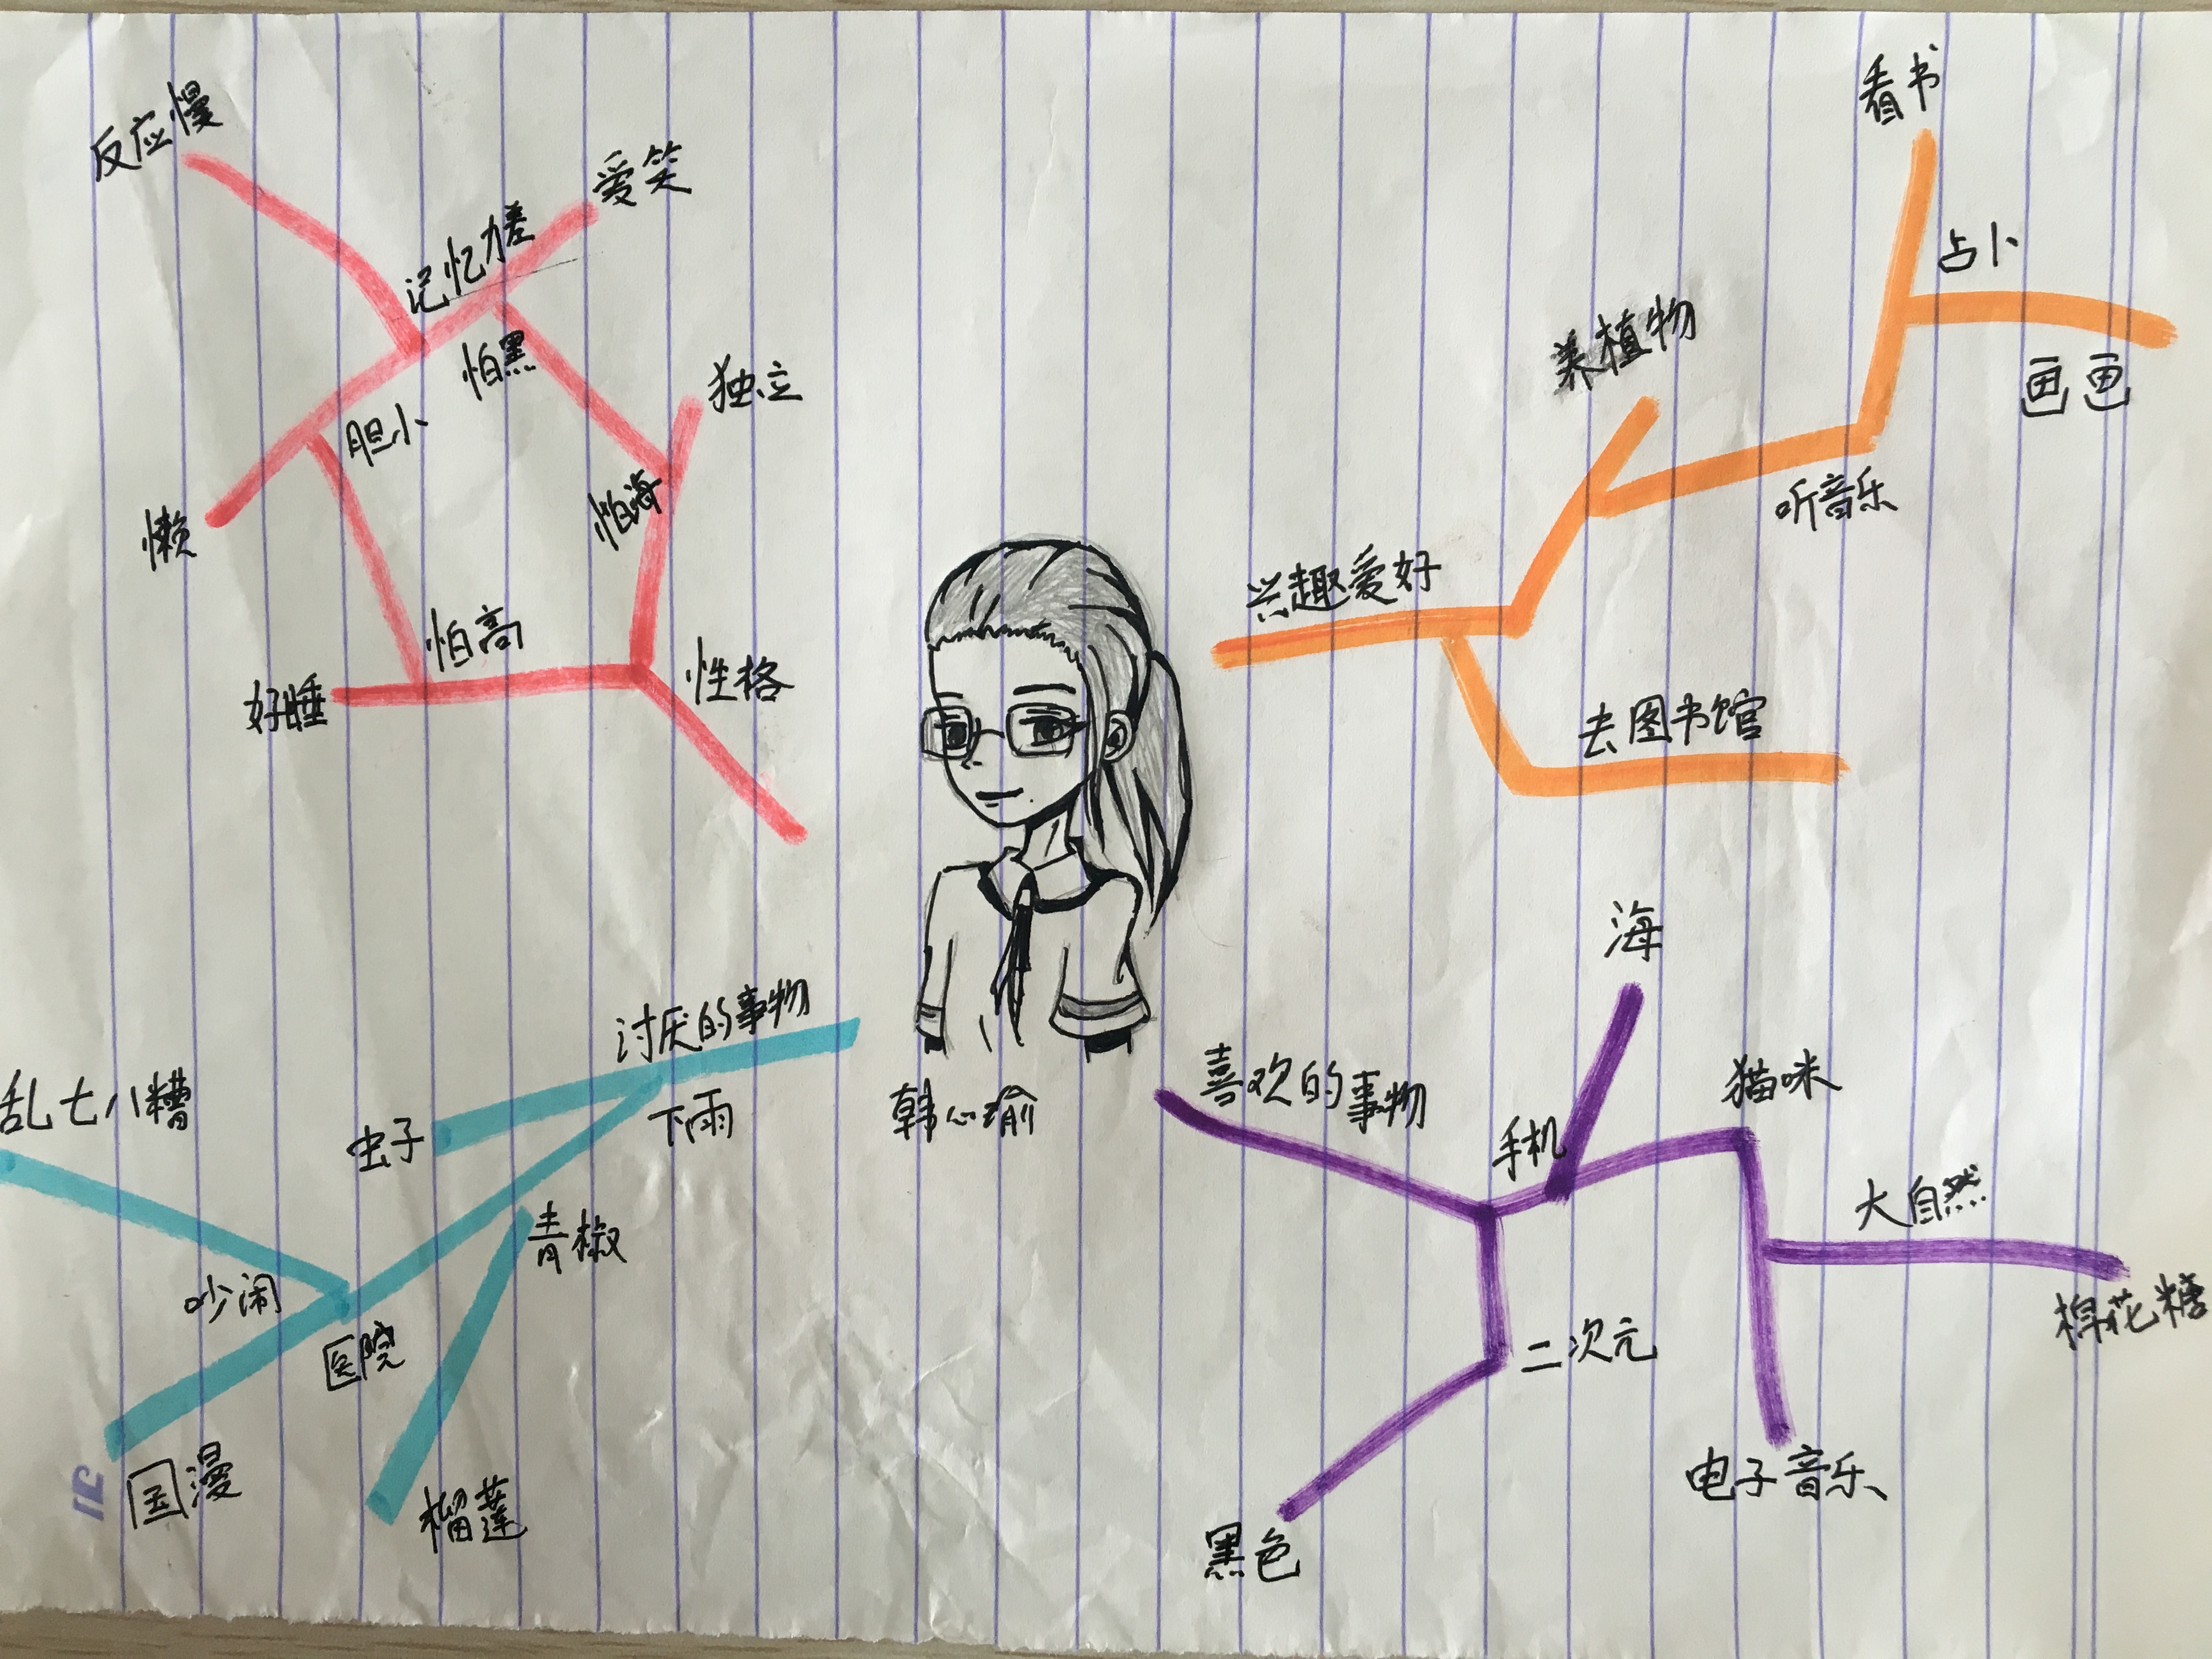 反应慢
记忆力差
爱笑
怕黑
独立
胆小
怕海
懒
怕高
性格
好睡
看书
占卜
养植物
画画
听音乐
兴趣爱好
去图书馆
讨厌的事物
下雨
虫子
乱七八糟
青椒
吵闹
医院
国漫
榴莲
韩心瑜
喜欢的事物
海
手机
猫咪
大自然
棉花糖
二次元
电子音乐
黑色
31